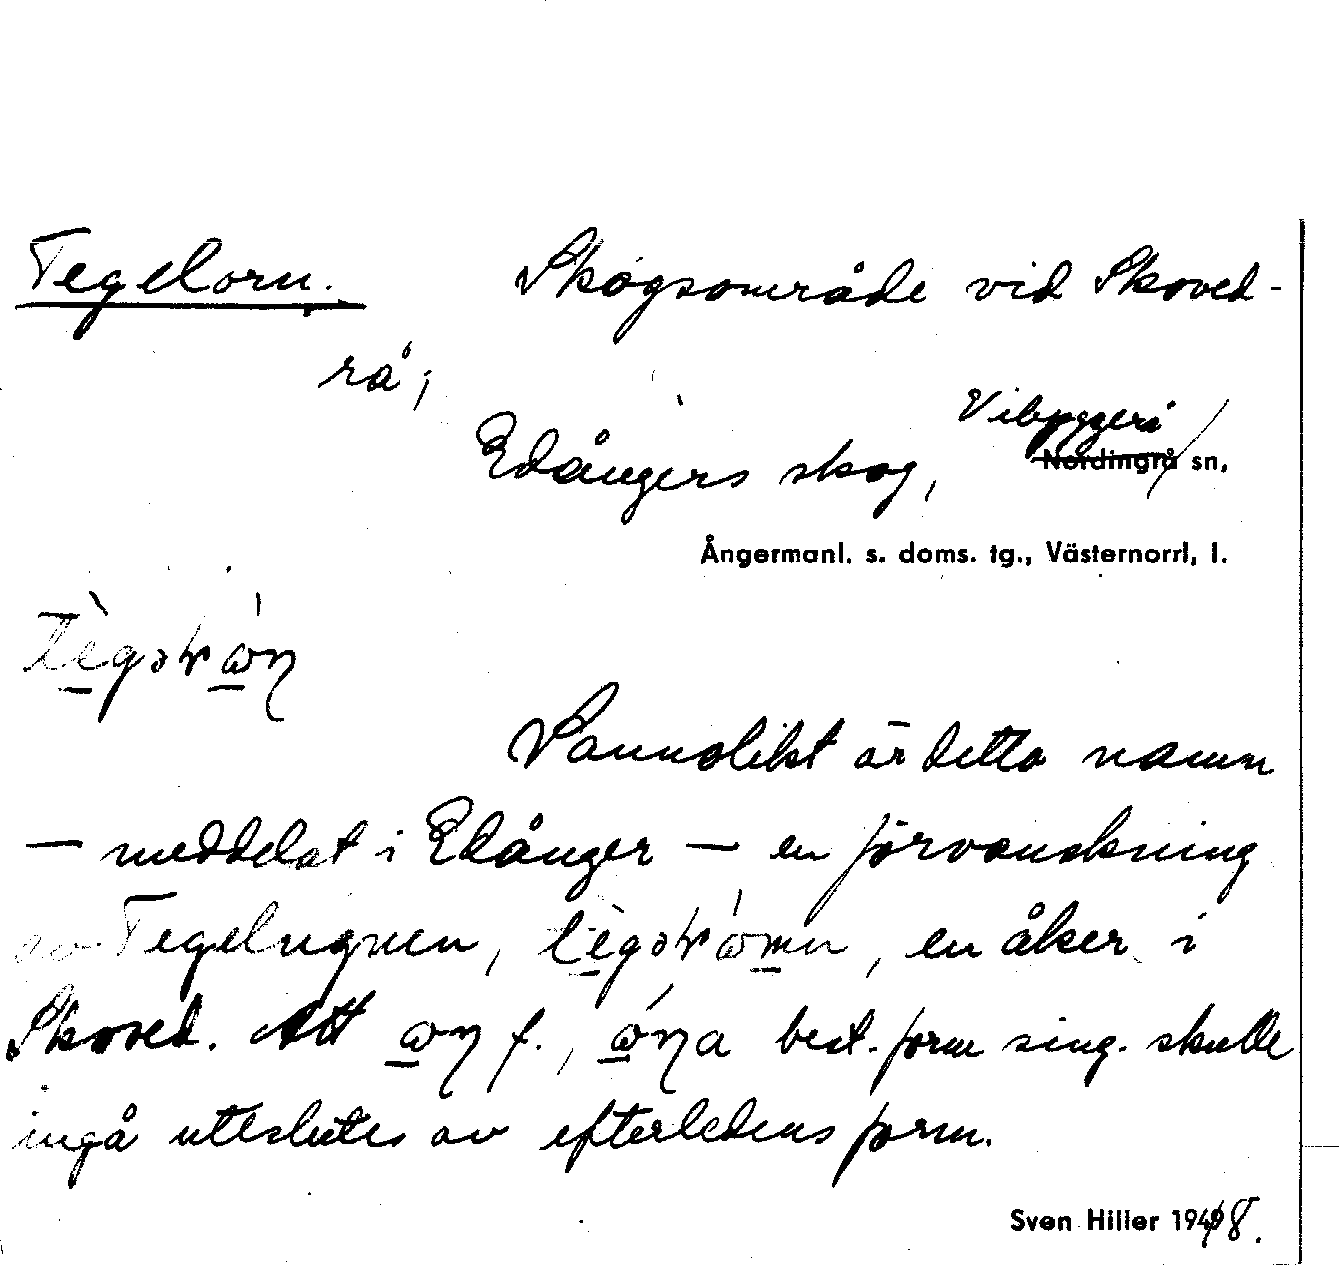 Tegelorn. Skogsområde vid Skoved-
rå;
Vibyggerå
Edångers skog, Nordingrå sn,
Ångermanl. s. doms. tg., Västernorrl. l.
Sannolikt är detta namn
— meddelat i Edånger — en förvanskning
av Tegelugnen, en åker i
Skoved. Att f., best. form sing. skulle
ingå uteslutes av efterledens form.
Sven Hiller 1948.